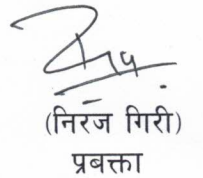 (निरज गिरी)
प्रबक्ता